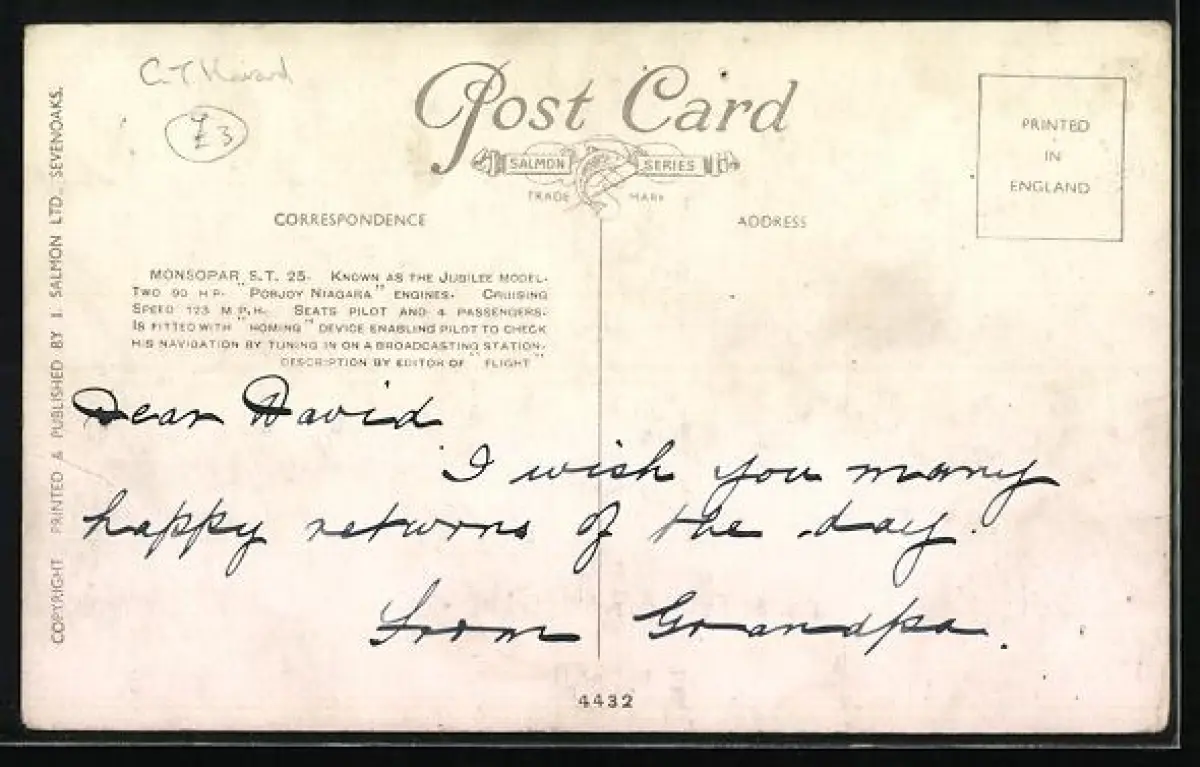 £3
Post Card
SALMON SERIES
TRADE MARK
PRINTED
IN
ENGLAND
CORRESPONDENCE
ADDRESS
MONSOPAR S.T. 25. KNOWN AS THE JUBILEE MODEL.
TWO 90 H.P. "POBJOY NIAGARA" ENGINES. CRUISING
SPEED 123 M.P.H. SEATS PILOT AND 4 PASSENGERS.
IS FITTED WITH "HOMING" DEVICE ENABLING PILOT TO CHECK
HIS NAVIGATION BY TUNING IN ON A BROADCASTING STATION.
DESCRIPTION BY EDITOR OF "FLIGHT"
Dear David
I wish you many
happy returns of the day.
From Grandpa.
4432
COPYRIGHT PRINTED & PUBLISHED BY J. SALMON LTD., SEVENOAKS.